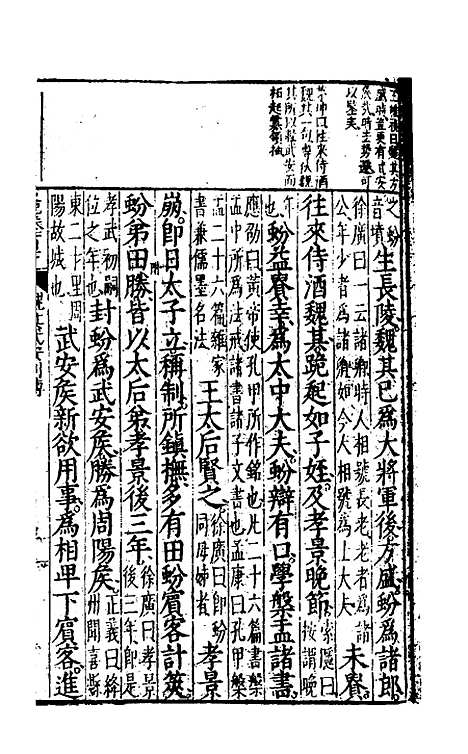 維禎曰魏其方
盛時豈更有武安
以堅美
往來侍酒
魏其一句
其所以輕武安而
之蚡
音墳
生長陵魏其已爲大將軍後方盛蚡爲諸郎
徐廣曰一云諸卿時人相號長老老者爲諸
公年少者爲諸卿如今人相號爲士大夫
未貴
往來侍酒魏其跪起如子姪及孝景晚節
索隱曰
按謂晚
年
也
蚡益貴幸爲太中大夫蚡辯有口學槃盂諸書
應劭曰黃帝使孔甲所作銘也凡二十六篇書槃
盂中所爲法戒諸書諸子文書也孟康曰孔甲槃
盂二十六篇雜家
書兼儒墨名法
王太后賢之
徐廣曰即蚡
同母姊者
孝景
崩即日太子立稱制所鎮撫多有田蚡賓客計筴
蚡弟田勝皆以太后弟孝景後三年
徐廣曰孝景
後三年即是
孝武初嗣
位之年也
封蚡爲武安侯勝爲周陽侯
正義曰絳
州聞喜縣
東二十里周
陽故城也
武安侯新欲用事爲相卑下賓客進